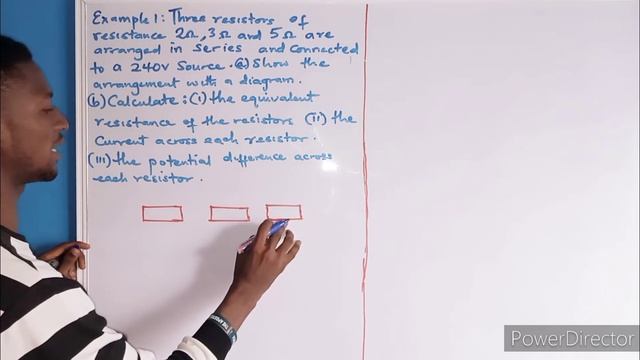 Example 1: Three resistors of
resistance 2Ω, 3Ω and 5Ω are
arranged in series and connected
to a 240v source. (a) Show the
arrangement with a diagram.
(b) Calculate: (i) the equivalent
resistance of the resistors (ii) the
current across each resistor.
(iii) the potential difference across
each resistor.
PowerDirector